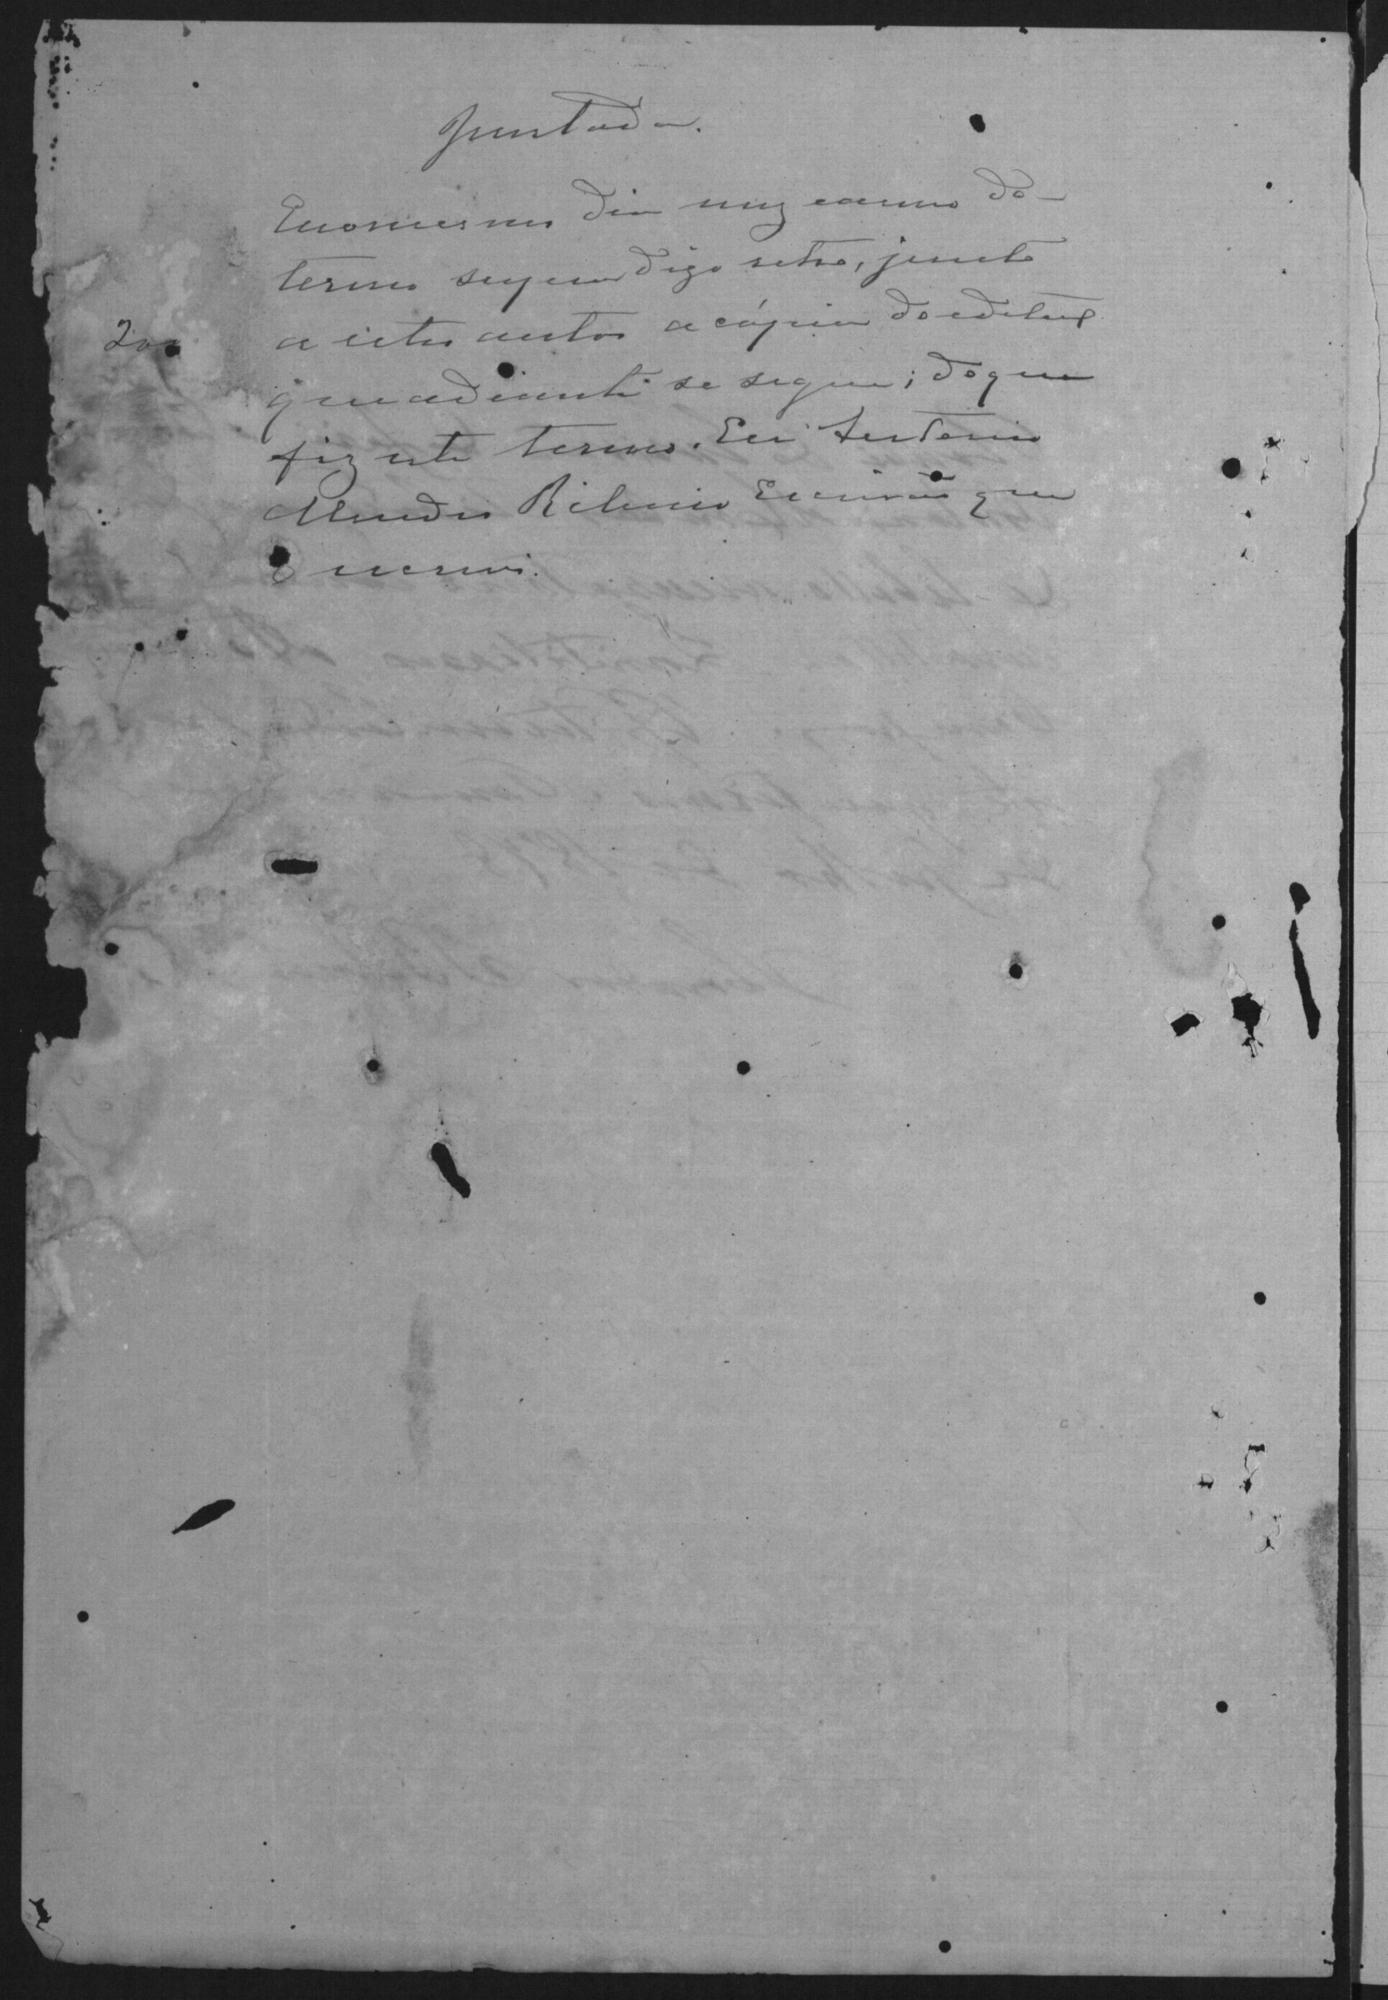 Juntada.
Enomesmo dia mez eanno do
termo seguem digo retro, junto
200
a estes autos a cópia do edital
que adiante se segue; do que
fiz este termo. Eu Antonio
Mendes Ribeiro Escrivão que
o escrevi.